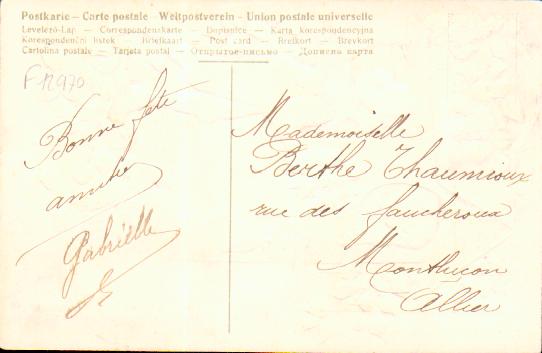 Postkarte – Carte postale – Weltpostverein – Union postale universelle
Levelező-Lap – Correspondenzkarte – Dopisnice – Karta korespondencyjna
Korespondenční lístek – Briefkaart – Post card – Brefkort – Brevkort
Cartolina postale – Tarjeta postal – Открытое-письмо – Дописна карта
F12970
Bonne fête
Gabrielle
Mademoiselle
Berthe Thaumioux
rue des faucheroux
Montluçon
Allier